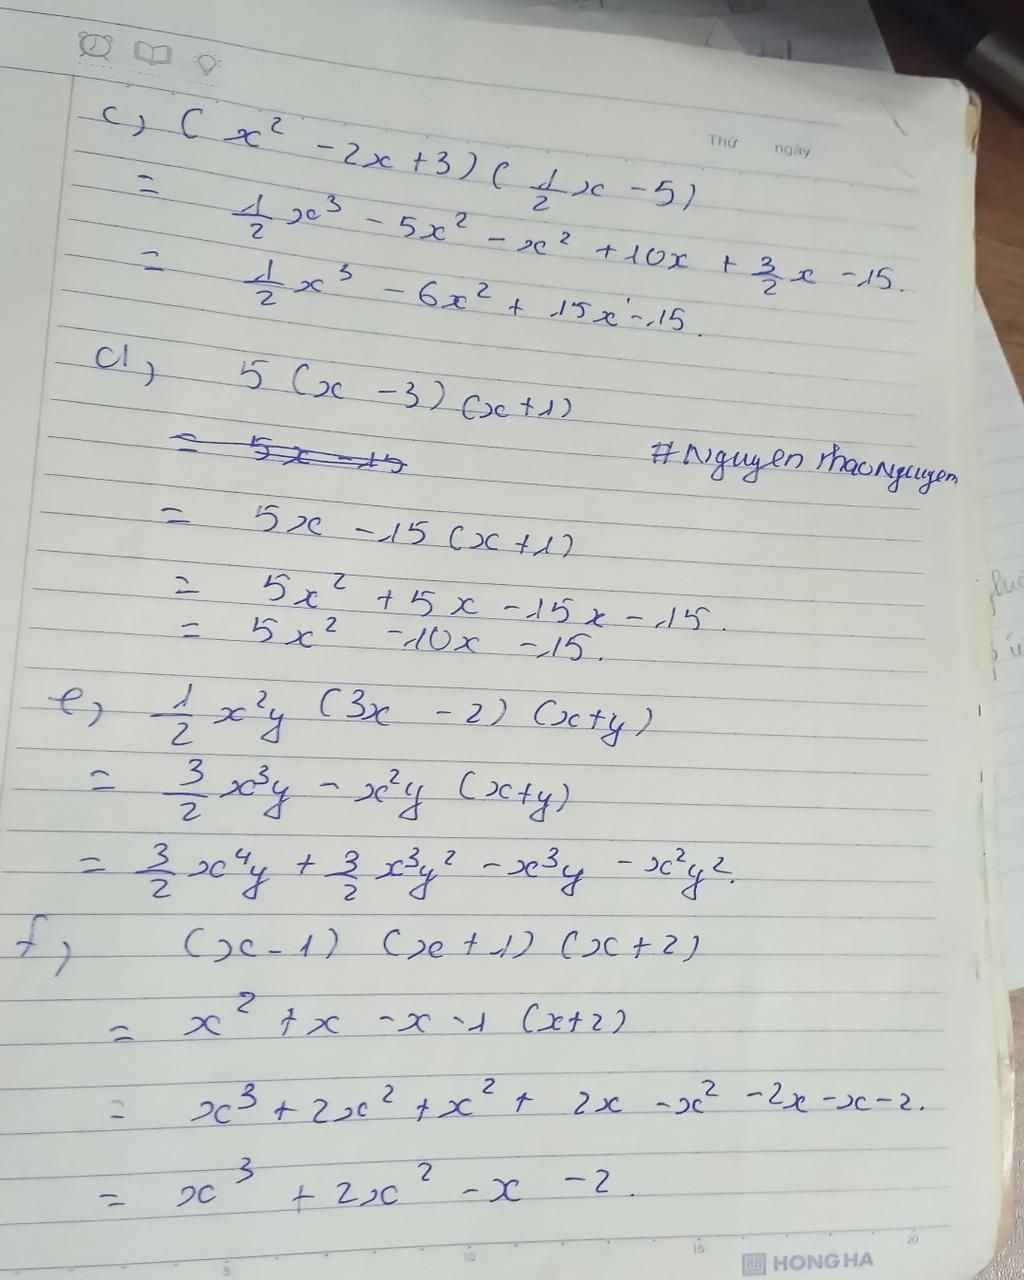 Thứ ngày
c, (x² - 2x + 3) (1/2 x - 5)
= 1/2 x³ - 5x² - x² + 10x + 3/2 x - 15.
= 1/2 x³ - 6x² + 15x - 15.
d, 5 (x - 3) (x + 1)
= 5x - 15
#Nguyen thaoNguyen
= 5x - 15 (x + 1)
= 5x² + 5x - 15x - 15.
= 5x² - 10x - 15.
e, 1/2 x²y (3x - 2) (x + y)
= 3/2 x³y - x²y (x + y)
= 3/2 x⁴y + 3/2 x³y² - x³y - x²y².
f, (x - 1) (x + 1) (x + 2)
= x² + x - x - 1 (x + 2)
= x³ + 2x² + x² + 2x - x² - 2x - x - 2.
= x³ + 2x² - x - 2.
5 10 15 20
HONG HA